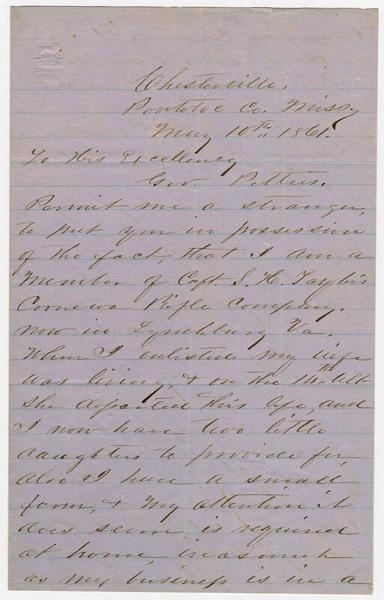 Chesterville,
Pontotoc Co. Missi
May 10th, 1861.
To His Excellency
Gov Pettus.
Permit me a stranger,
to put you in possession
of the fact, that I am a
Member of Capt. J. H. Taylor's
Rifle Company.
now in Lynchburg Va.
When I enlisted my wife
was living, & on the 14th ult
she departed this life, and
I now have two little
daughters to provide for,
also I have a small
farm, & my attention it
does seem is required
at home, inasmuch
as my business is in a